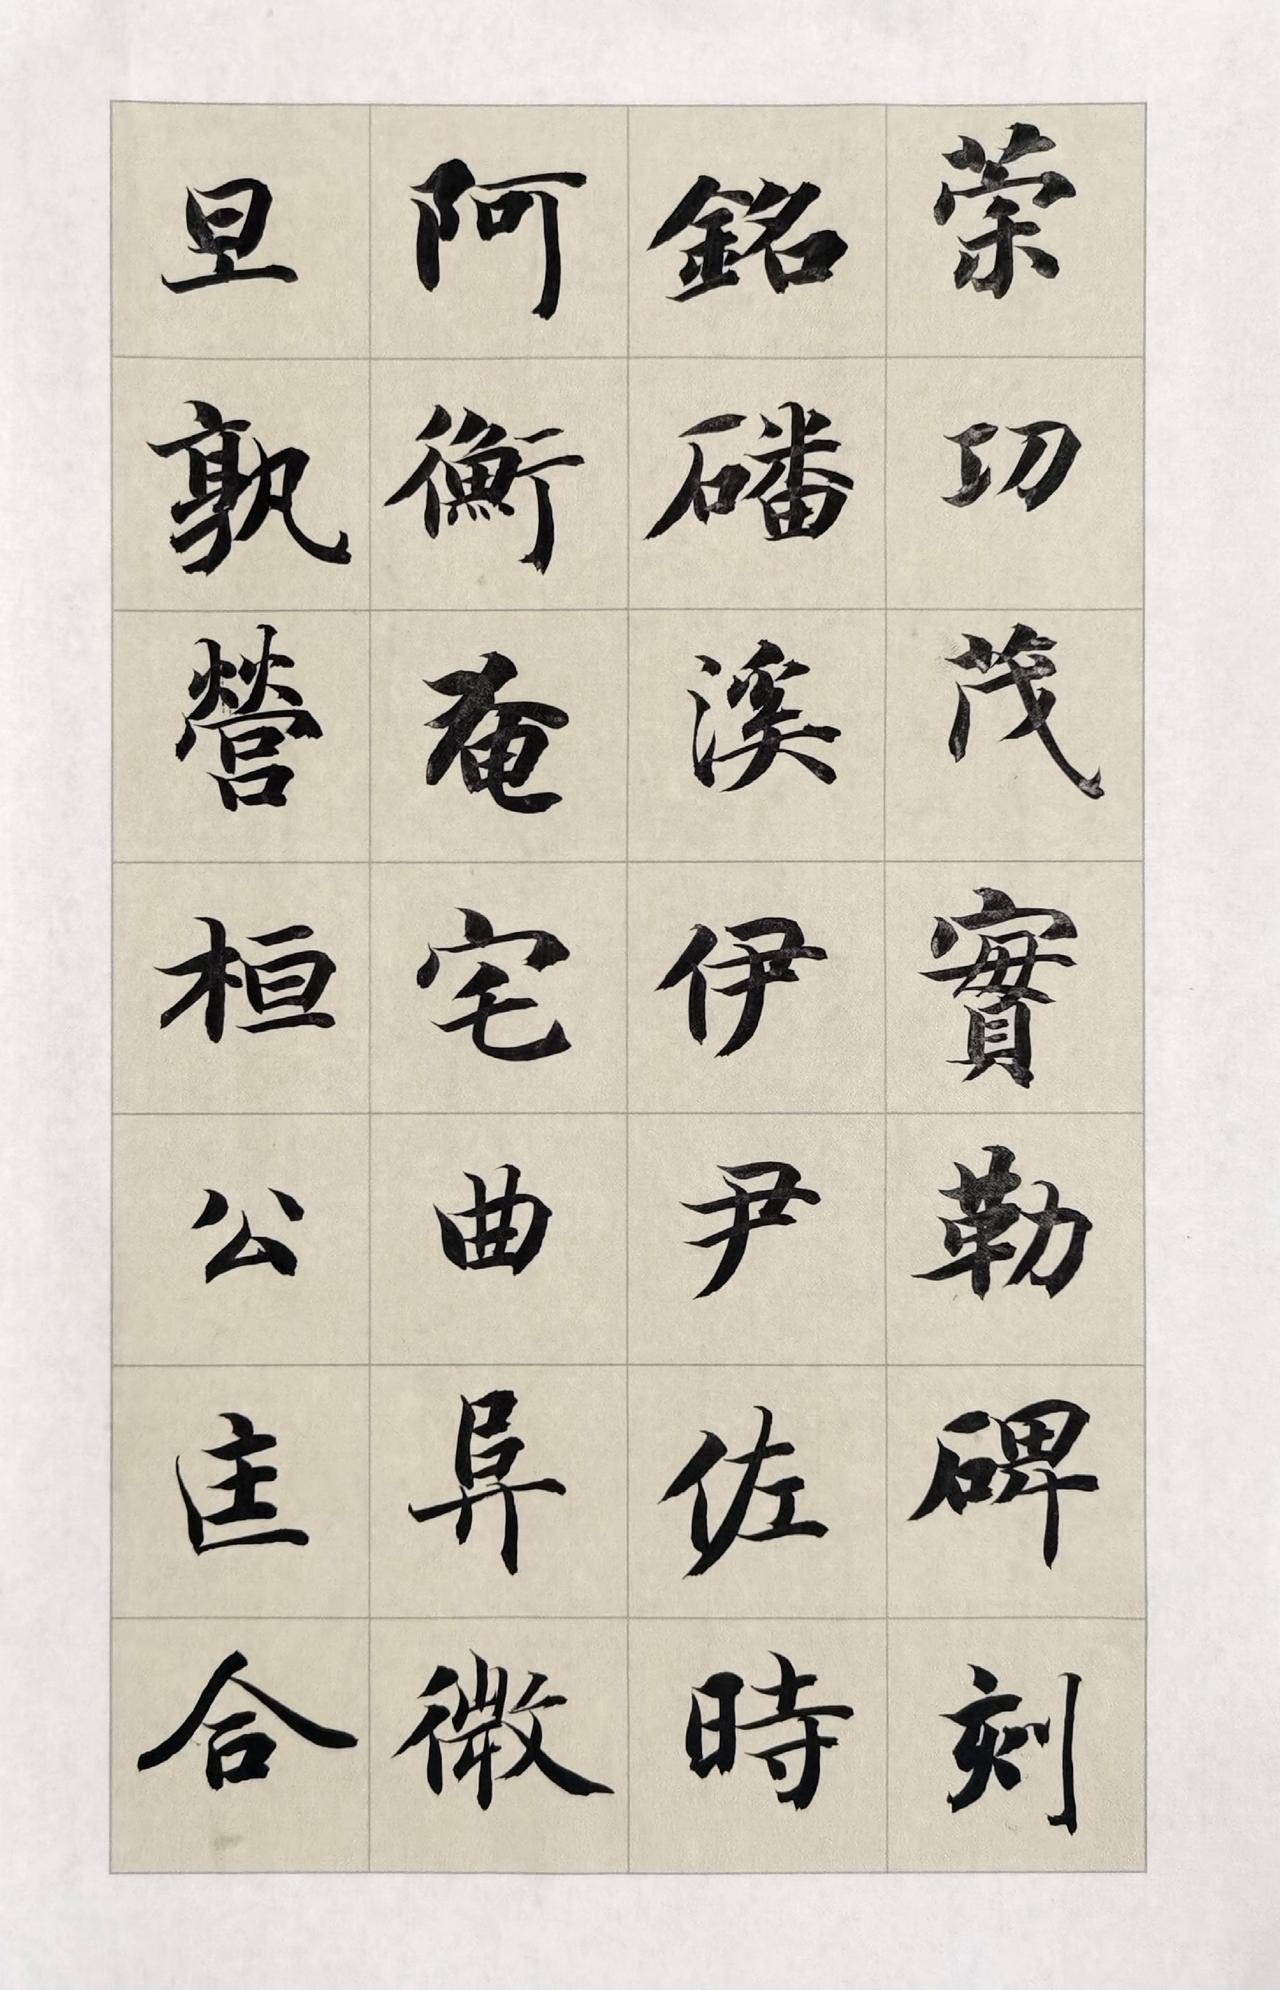 策功茂實勒碑刻
銘磻溪伊尹佐時
阿衡奄宅曲阜微
旦孰營桓公匡合